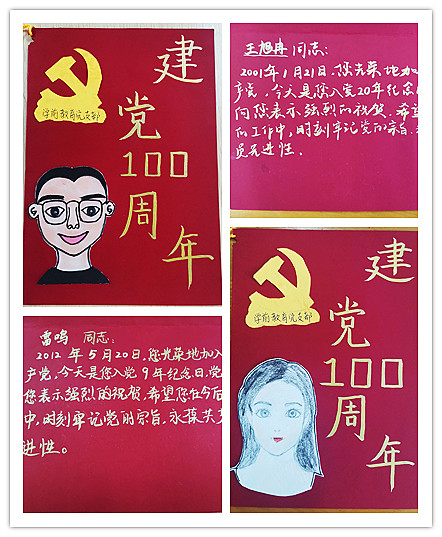 建
党
100
周
年
学前教育党支部
王旭冉同志：
2001年1月21日，您光荣地加
产党，今天是您入党20年纪念
向您表示强烈的祝贺，希望
的工作中，时刻牢记党的宗旨，
员先进性。
雷鸣 同志：
2012年5月20日，您光荣地加入
产党，今天是您入党9年纪念日，党
您表示强烈的祝贺，希望您在今后
中，时刻牢记党的宗旨，永葆共
进性。
建
党
100
周
年
学前教育党支部